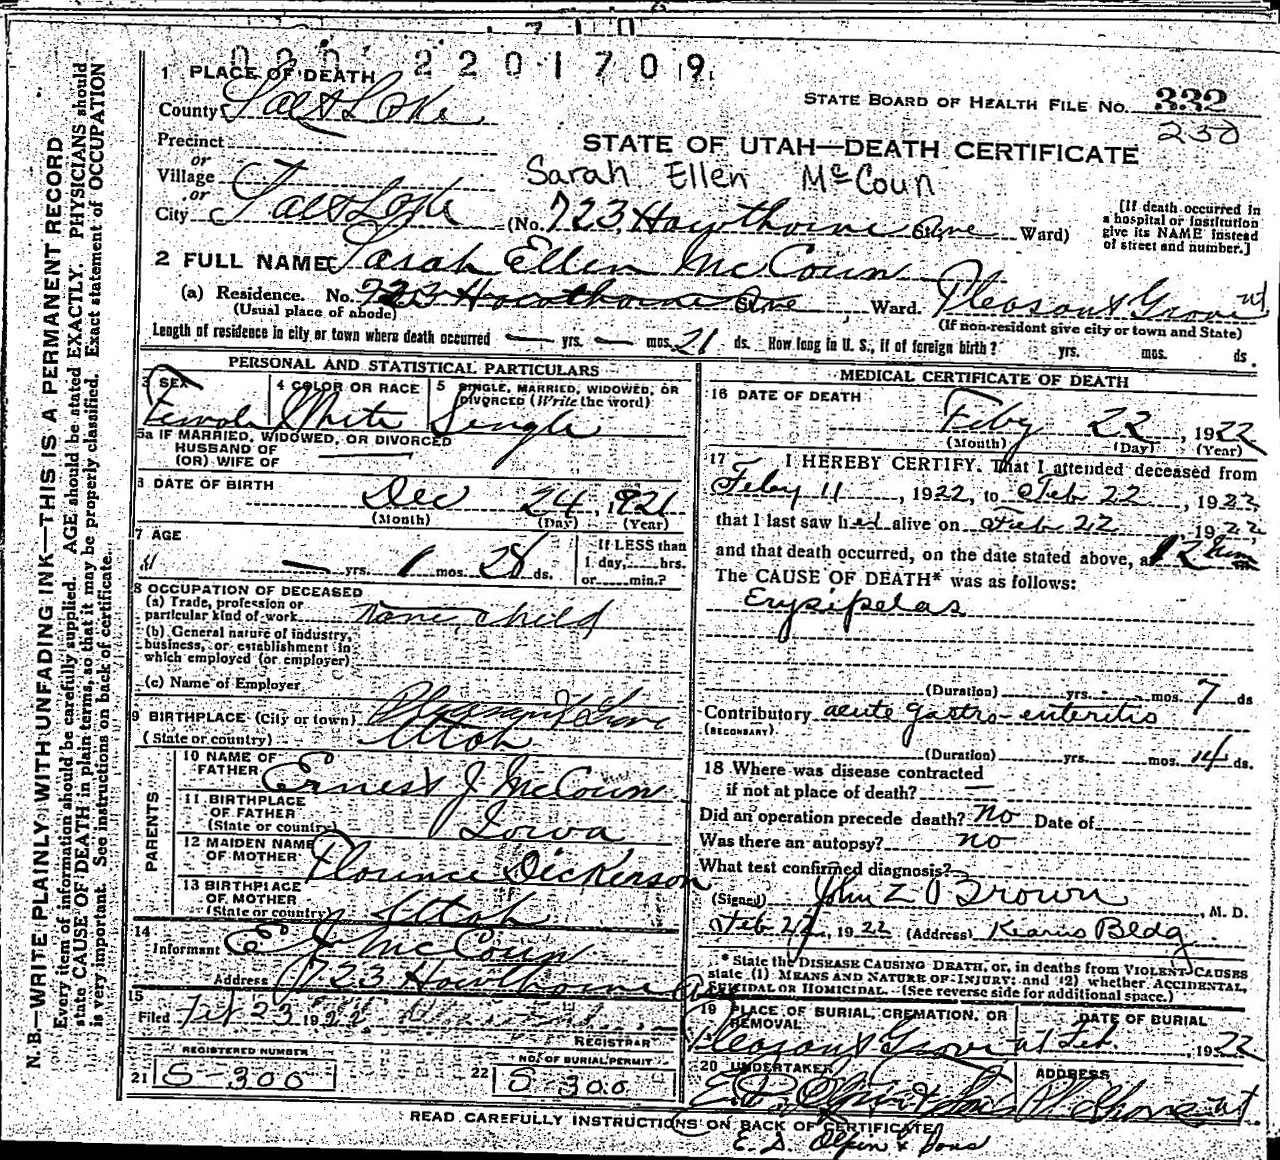 020 2201709
1 PLACE OF DEATH
County Salt Lake
STATE BOARD OF HEALTH FILE NO. 332
230
Precinct
or
Village
or
City Salt Lake
STATE OF UTAH—DEATH CERTIFICATE
Sarah Ellen McCoun
(No. 723 Hawthorne Ave Ward)
[If death occurred in
a hospital or institution
give its NAME instead
of street and number.]
2 FULL NAME Sarah Ellen McCoun
(a) Residence. No. 723 Hawthorne Ave Ward. Pleasant Grove ut
(Usual place of abode)
(If non-resident give city or town and State)
Length of residence in city or town where death occurred — yrs. — mos. 21 ds. How long in U. S., if of foreign birth? yrs. mos. ds.
PERSONAL AND STATISTICAL PARTICULARS
3 SEX
Female
4 COLOR OR RACE
White
5 SINGLE, MARRIED, WIDOWED, OR
DIVORCED (Write the word)
Single
5a IF MARRIED, WIDOWED, OR DIVORCED
HUSBAND OF
(OR) WIFE OF
DATE OF BIRTH Dec 24, 1921
(Month) (Day) (Year)
7 AGE
— yrs. 1 mos. 28 ds.
If LESS than
1 day, hrs.
or min.?
8 OCCUPATION OF DECEASED
(a) Trade, profession or
particular kind of work None child
(b) General nature of industry,
business, or establishment in
which employed (or employer)
(c) Name of Employer
9 BIRTHPLACE (City or town) Pleasant Grove
(State or country) Utah
PARENTS
10 NAME OF
FATHER Ernest J McCoun
11 BIRTHPLACE
OF FATHER
(State or country) Iowa
12 MAIDEN NAME
OF MOTHER Florence Dickerson
13 BIRTHPLACE
OF MOTHER
(State or country) Utah
14
Informant E J McCoun
Address 723 Hawthorne Ave
15
Filed Feb 23 1922
REGISTRAR
REGISTERED NUMBER
21 S-300
NO. OF BURIAL PERMIT
22 S-300
MEDICAL CERTIFICATE OF DEATH
16 DATE OF DEATH
Feby 22, 1922
(Month) (Day) (Year)
17 I HEREBY CERTIFY, That I attended deceased from
Feby 11, 1922, to Feb 22, 1922,
that I last saw her alive on Feb 22 1922,
and that death occurred, on the date stated above, at 12
The CAUSE OF DEATH* was as follows:
Erysipelas
(Duration) yrs. mos. 7 ds
Contributory acute gastro-enteritis
(SECONDARY)
(Duration) yrs. mos. 14 ds.
18 Where was disease contracted
if not at place of death? —
Did an operation precede death? no Date of
Was there an autopsy? no
What test confirmed diagnosis?
(Signed) John Z Brown, M. D.
Feb 22, 1922 (Address) Kearns Bldg
* State the DISEASE CAUSING DEATH, or, in deaths from VIOLENT CAUSES
state (1) MEANS AND NATURE OF INJURY; and (2) whether ACCIDENTAL,
SUICIDAL OR HOMICIDAL. (See reverse side for additional space.)
19 PLACE OF BURIAL, CREMATION, OR
REMOVAL
Pleasant Grove ut
DATE OF BURIAL
Feb. , 1922
20 UNDERTAKER
E. D. Olpin & Sons
ADDRESS
Pl. Grove ut
READ CAREFULLY INSTRUCTIONS ON BACK OF CERTIFICATE
E. D. Olpin & Sons
N. B.—WRITE PLAINLY WITH UNFADING INK—THIS IS A PERMANENT RECORD
Every item of information should be carefully supplied. AGE should be stated EXACTLY. PHYSICIANS should
state CAUSE OF DEATH in plain terms, so that it may be properly classified. Exact statement of OCCUPATION
is very important. See instructions on back of certificate.